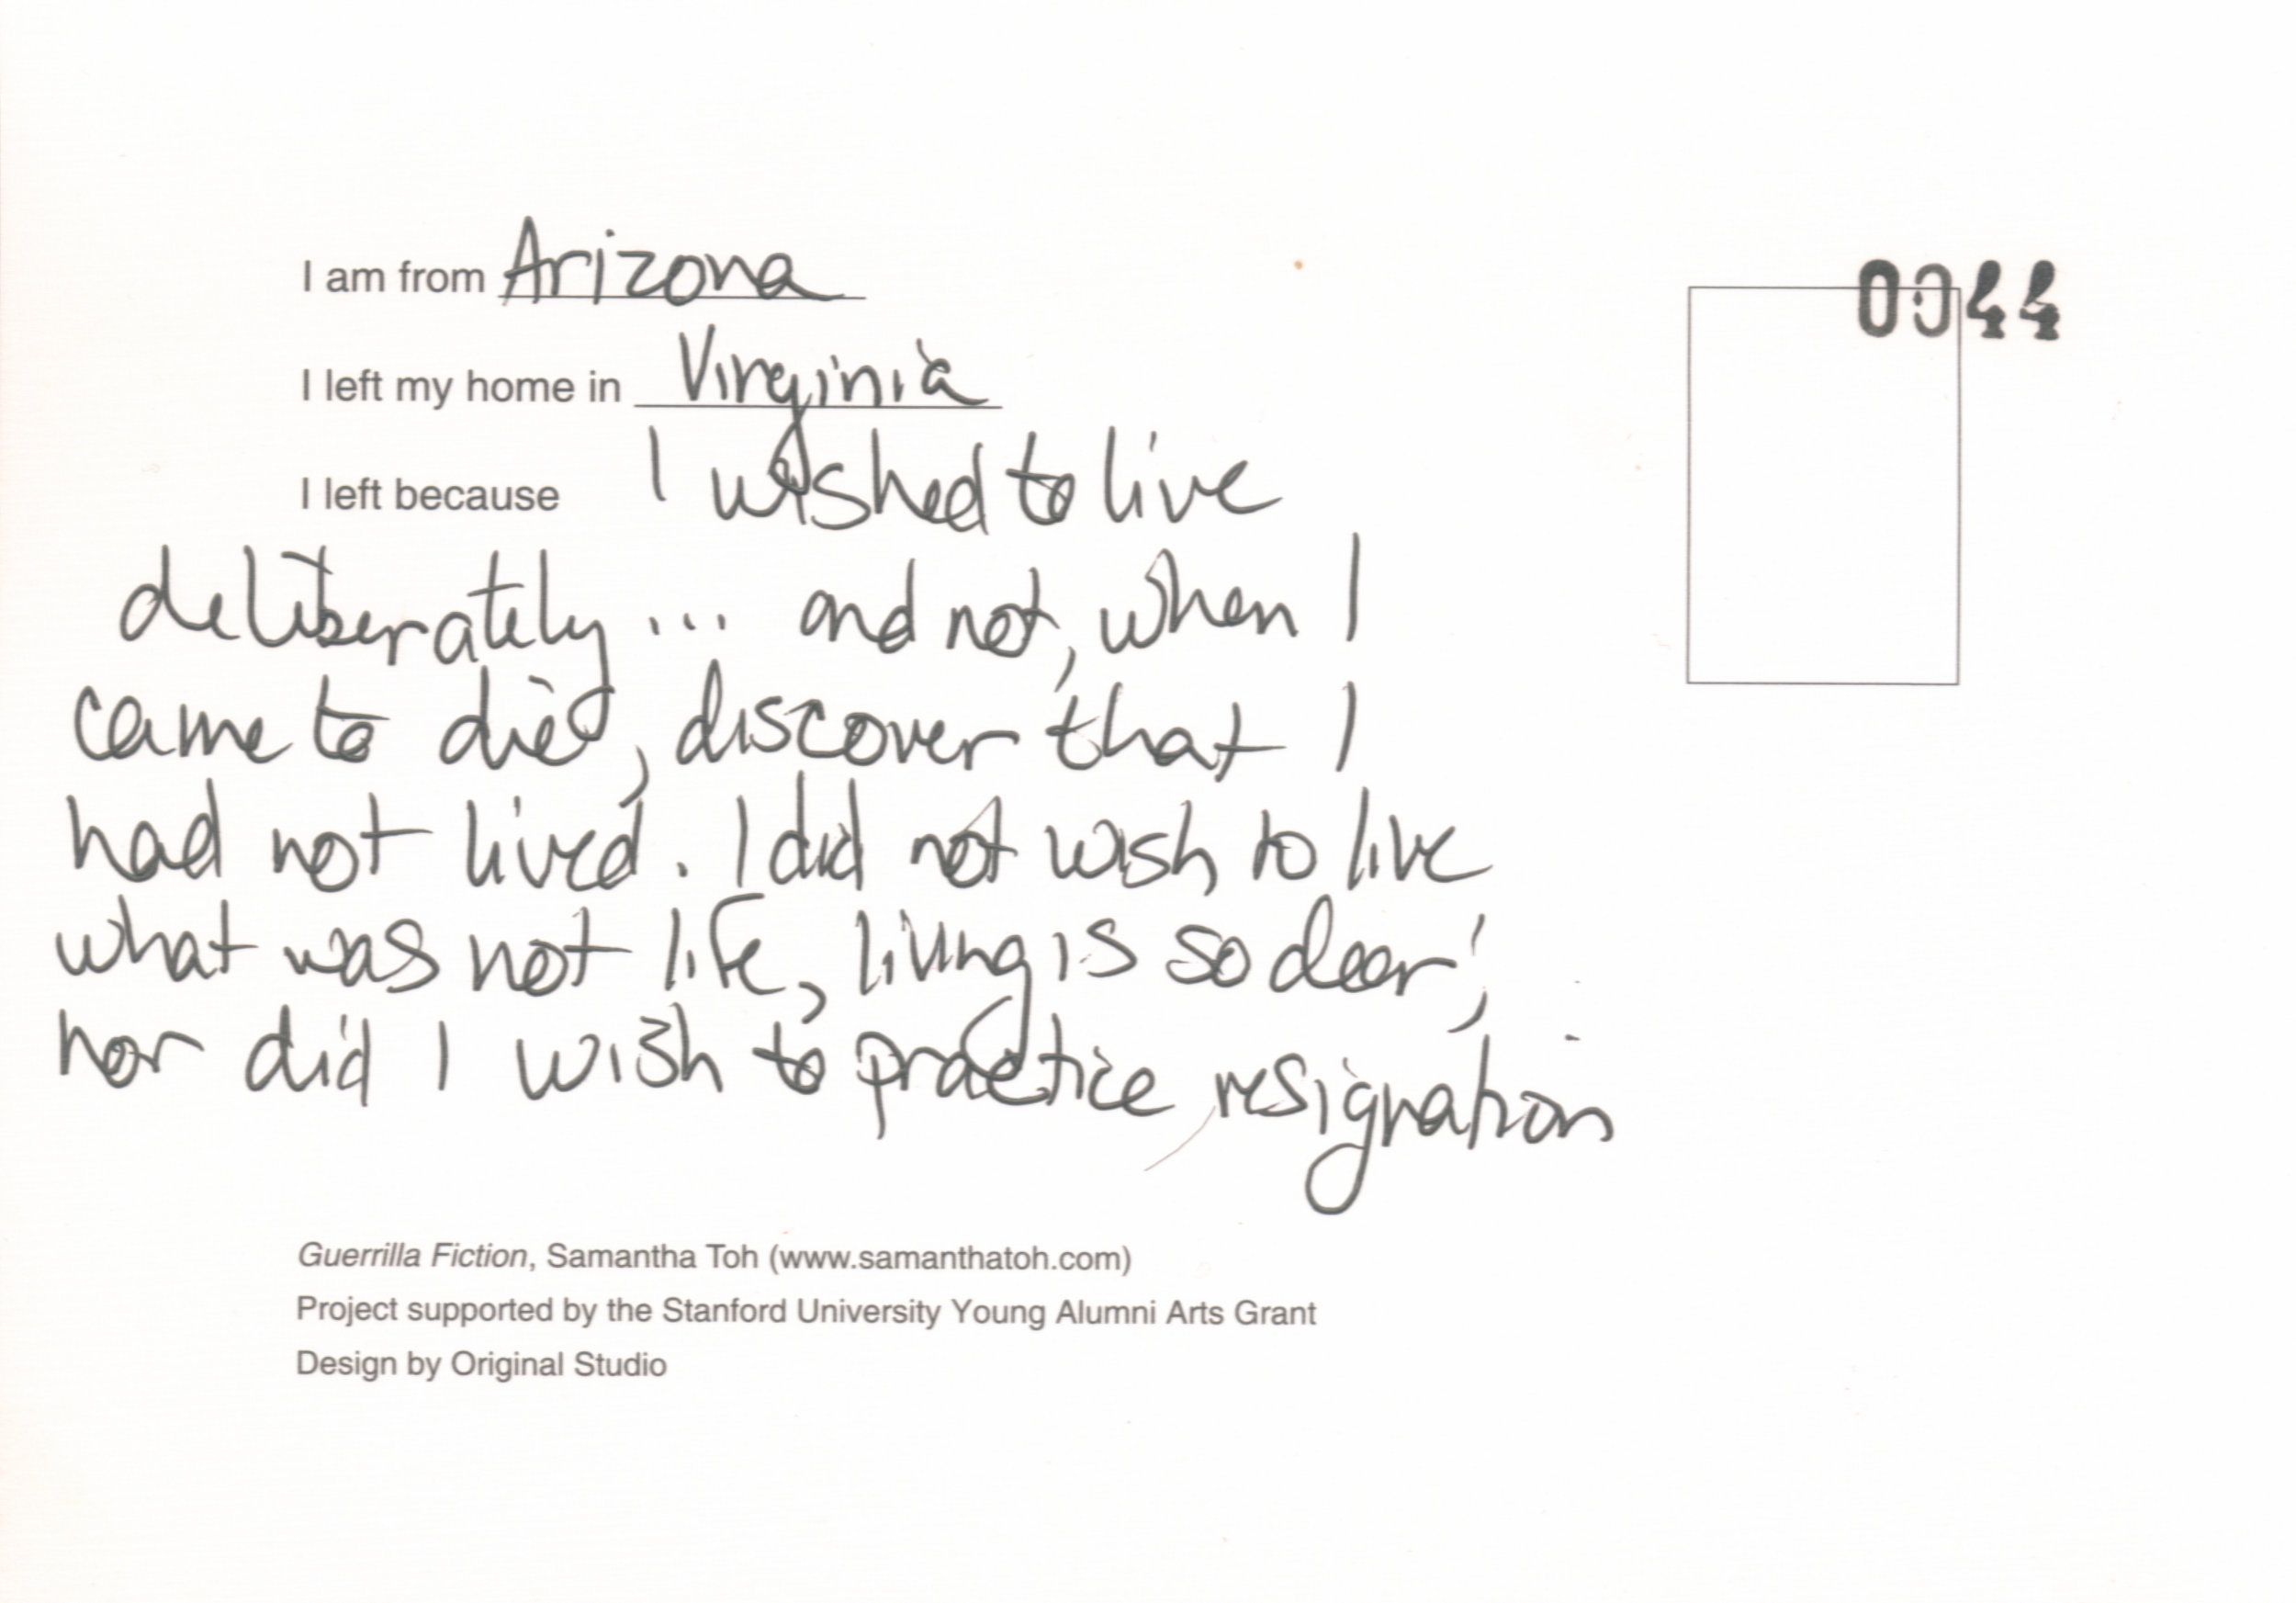 I am from Arizona
0044
I left my home in Virginia
I left because I wished to live
deliberately... and not, when I
came to die, discover that I
had not lived. I did not wish to live
what was not life, living is so dear;
nor did I wish to practice resignation
Guerrilla Fiction, Samantha Toh (www.samanthatoh.com)
Project supported by the Stanford University Young Alumni Arts Grant
Design by Original Studio